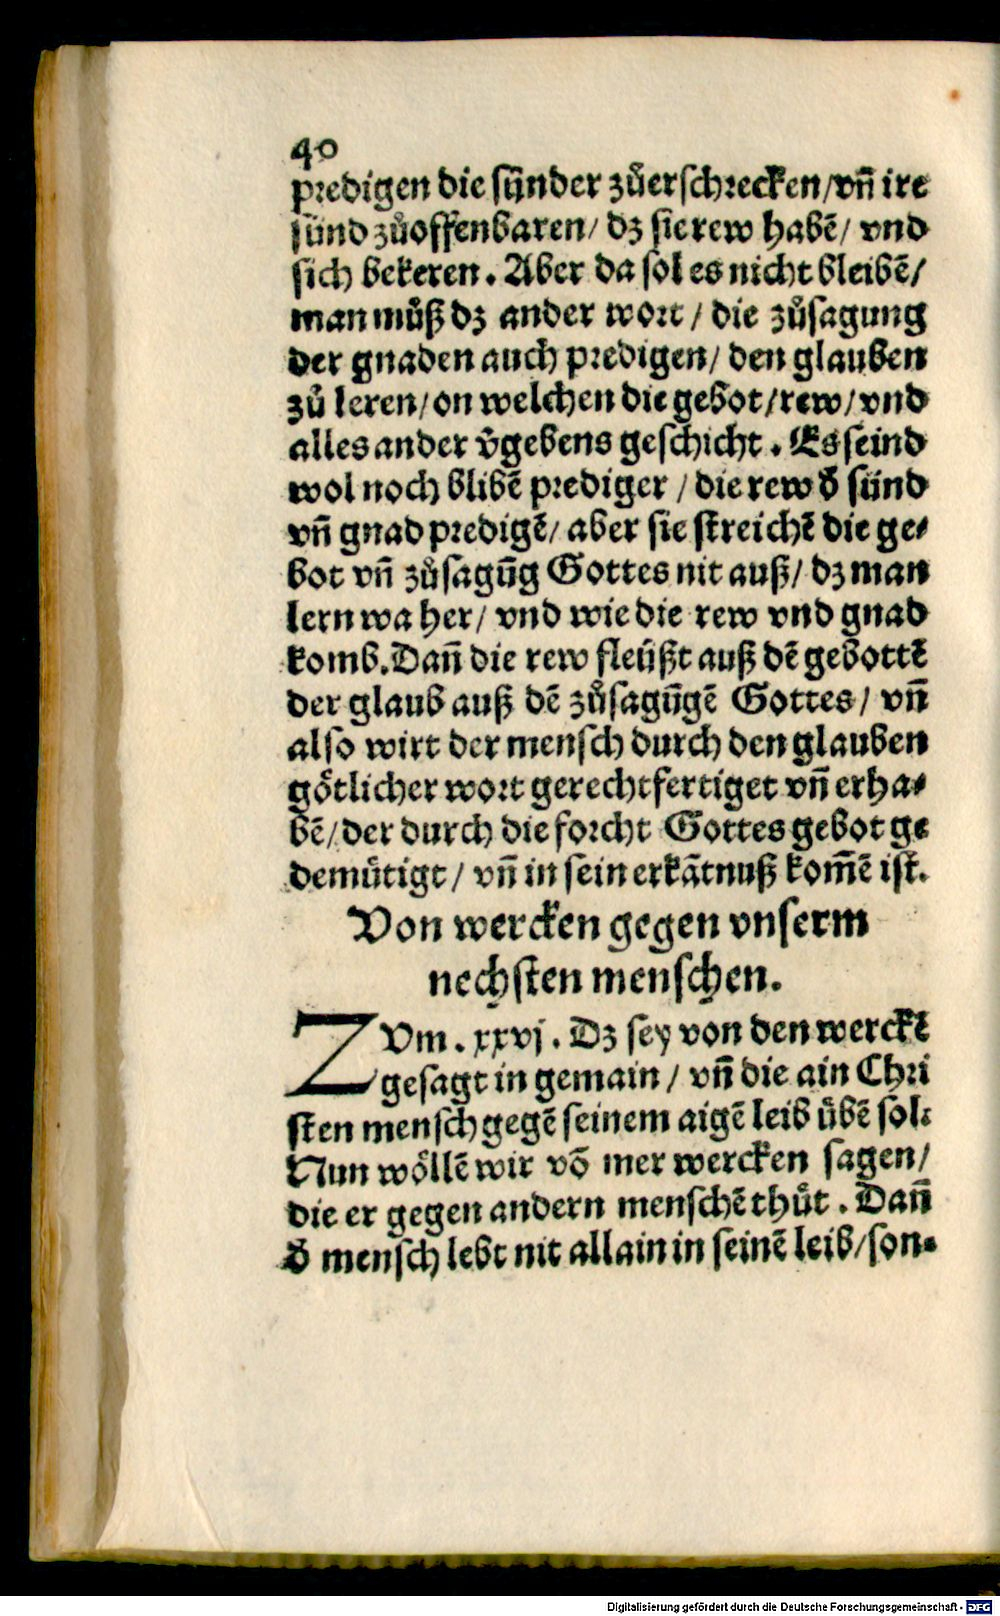 40
predigen die sünder zůerschrecken/vñ ire
sünd zůoffenbaren/ dz sie rew habē/ vnd
sich bekeren. Aber da sol es nicht bleibē/
man můß dz ander wort / die zůsagung
der gnaden auch predigen/ den glauben
zů leren/on welchen die gebot/rew/vnd
alles ander v̄gebens geschicht. Es seind
wol noch blibē prediger / die rew d̄ sünd
vñ gnad predigē/ aber sie streichē die ge-
bot vñ zůsagūg Gottes nit auß/ dz man
lern wa her/ vnd wie die rew vnd gnad
komb. Dañ die rew fleüßt auß dē gebottē
der glaub auß dē zůsagūgē Gottes/ vñ
also wirt der mensch durch den glauben
götlicher wort gerechtfertiget vñ erha-
bē/der durch die forcht Gottes gebot ge
demütigt/ vñ in sein erkātnuß kom̄ē ist.
Von wercken gegen vnserm
nechsten menschen.
ZVm. xxvj. Dz sey von den werckē
gesagt in gemain/ vñ die ain Chri
sten mensch gegē seinem aigē leib übē sol:
Nun wöllē wir vō mer wercken sagen/
die er gegen andern menschē thůt. Dañ
d̄ mensch lebt nit allain in seinē leib/son-
Digitalisierung gefördert durch die Deutsche Forschungsgemeinschaft - DFG